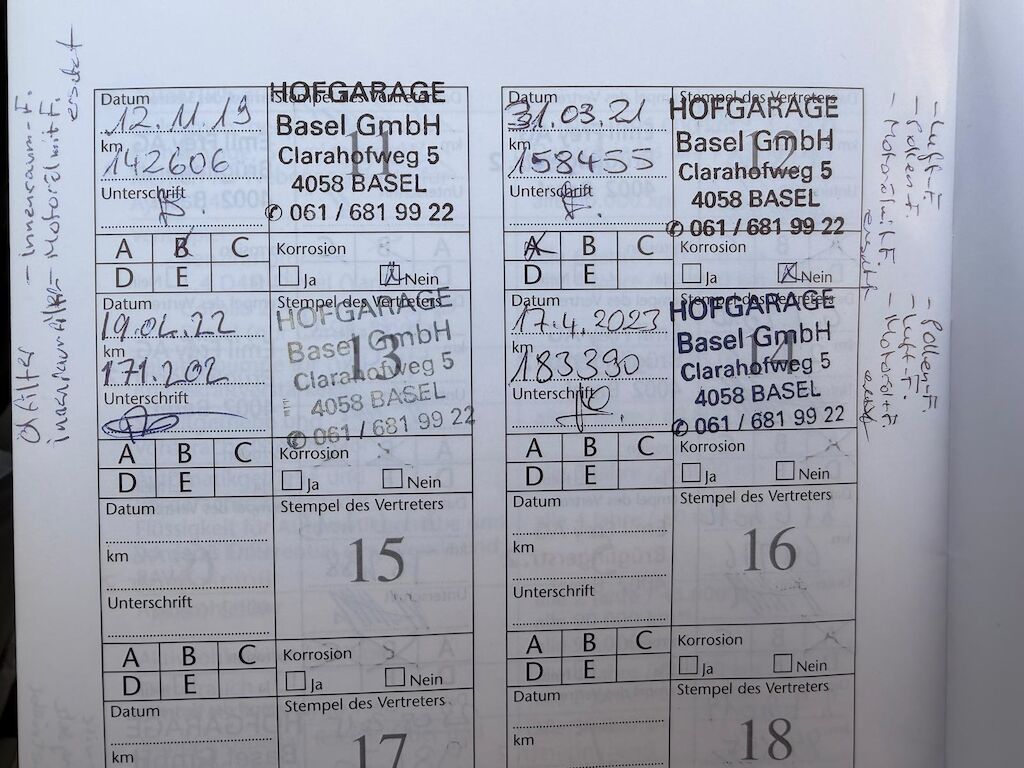 - Innenraum-F.
- Motorölmit F.
ersetzt
Datum
12.11.19
km
142606
Unterschrift
Stempel des Vertreters
11
HOFGARAGE
Basel GmbH
Clarahofweg 5
4058 BASEL
✆ 061 / 681 99 22
A B C
D E
Korrosion
Ja Nein
Datum
31.03.21
km
158455
Unterschrift
Stempel des Vertreters
12
HOFGARAGE
Basel GmbH
Clarahofweg 5
4058 BASEL
✆ 061 / 681 99 22
A B C
D E
Korrosion
Ja Nein
- Luft-F.
- Pollenf.
ersetzt
Datum
19.04.22
km
171.202
Unterschrift
Stempel des Vertreters
13
HOFGARAGE
Basel GmbH
Clarahofweg 5
4058 BASEL
✆ 061 / 681 99 22
A B C
D E
Korrosion
Ja Nein
Datum
17.4.2023
km
183390
Unterschrift
Stempel des Vertreters
14
HOFGARAGE
Basel GmbH
Clarahofweg 5
4058 BASEL
✆ 061 / 681 99 22
A B C
D E
Korrosion
Ja Nein
- Pollenf.
- Luft-F.
Datum
km
Unterschrift
Stempel des Vertreters
15
A B C
D E
Korrosion
Ja Nein
Datum
km
Unterschrift
Stempel des Vertreters
16
A B C
D E
Korrosion
Ja Nein
Datum
km
Stempel des Vertreters
17
Datum
km
Stempel des Vertreters
18